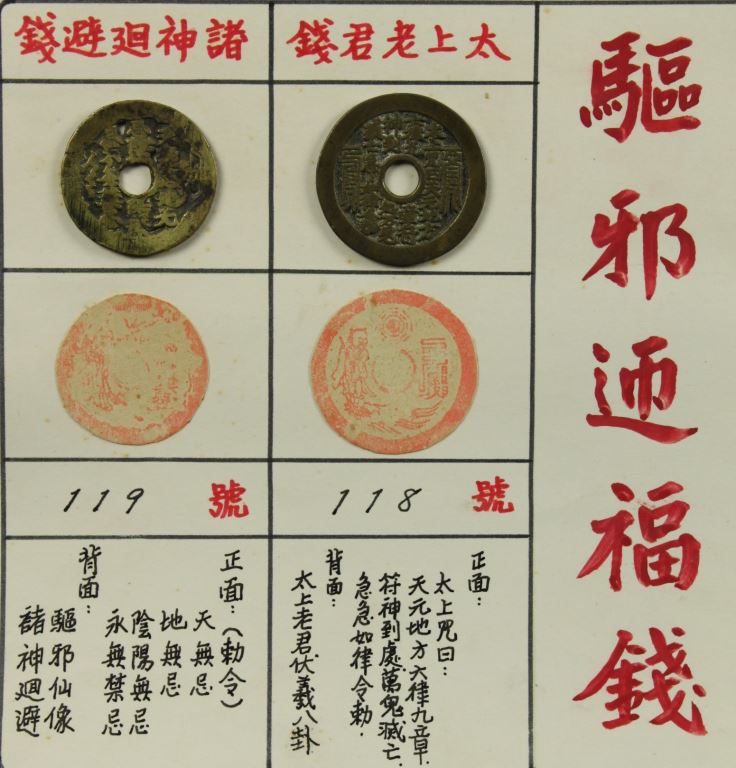 驅邪迊福錢
太上老君錢
118 號
正面：
太上咒曰：
天元地方六律九章．
符神到處萬鬼滅亡．
急急如律令勅．
背面：
太上老君伏羲八卦
諸神廻避錢
119 號
正面：(勅令)
天無忌
地無忌
陰陽無忌
永無禁忌
背面：
驅邪仙像
諸神廻避